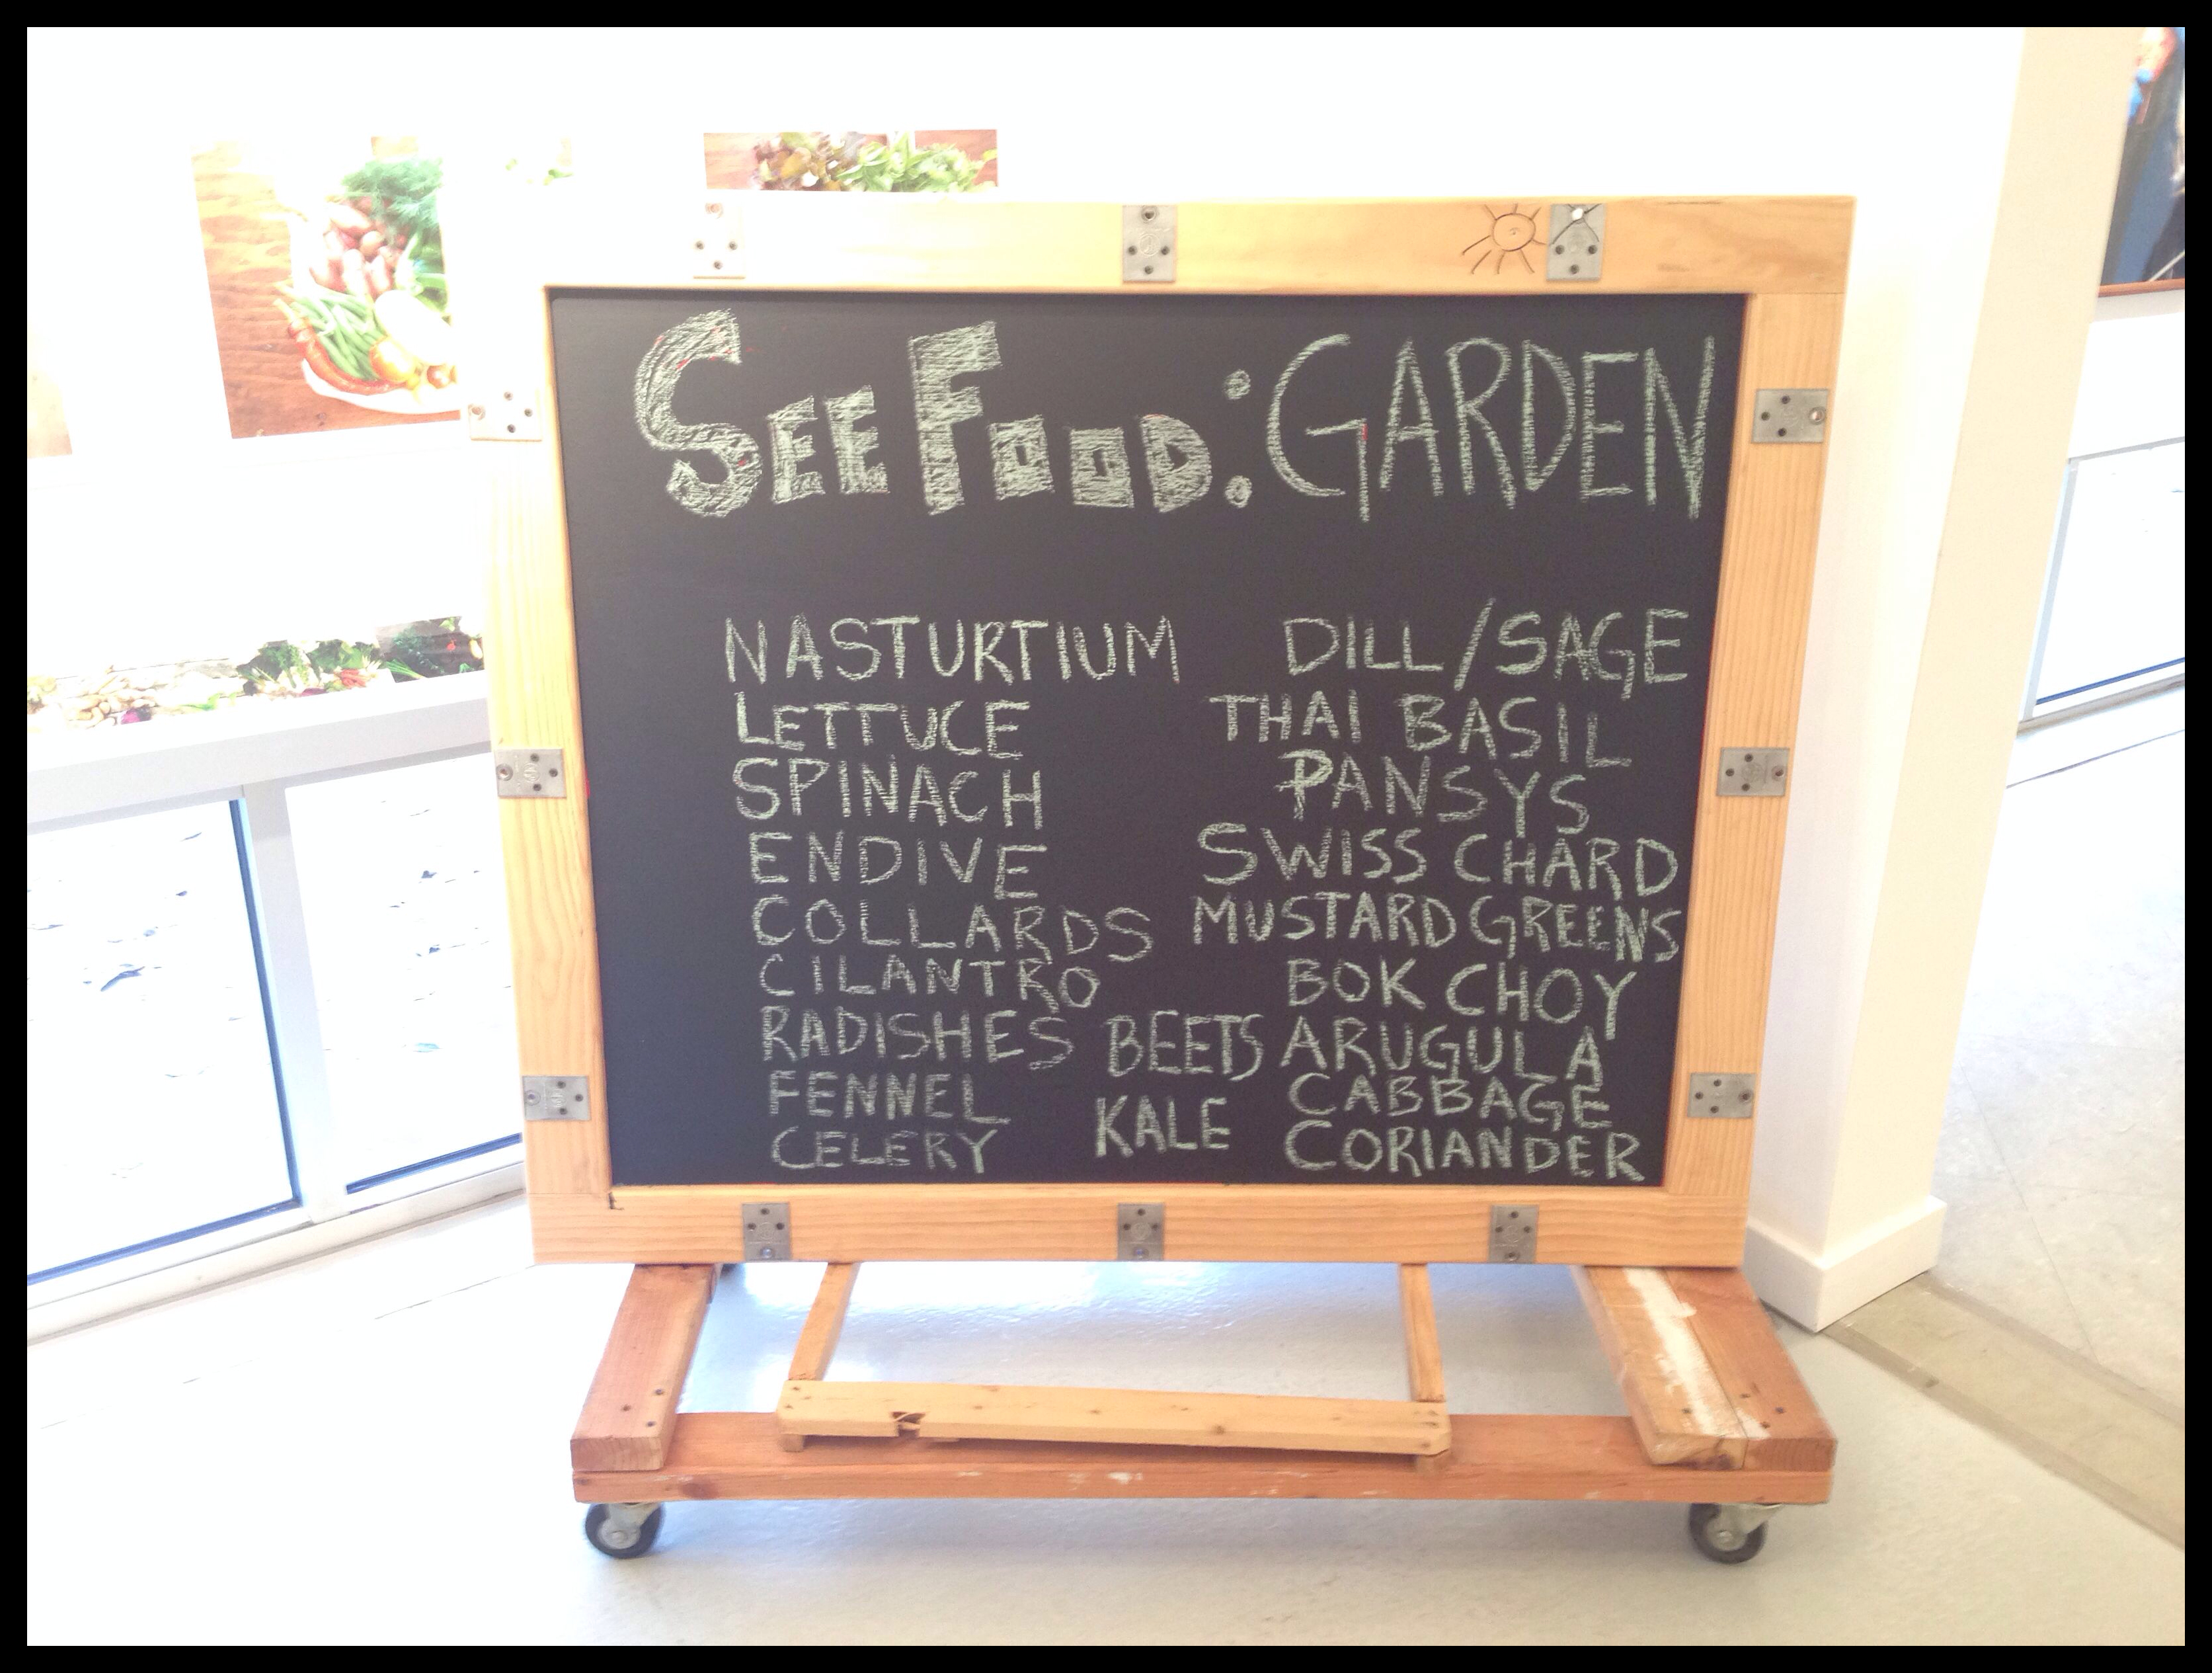 SEE FOOD: GARDEN
NASTURTIUM
LETTUCE
SPINACH
ENDIVE
COLLARDS
CILANTRO
RADISHES
FENNEL
CELERY
BEETS
KALE
DILL/SAGE
THAI BASIL
PANSYS
SWISS CHARD
MUSTARD GREENS
BOK CHOY
ARUGULA
CABBAGE
CORIANDER